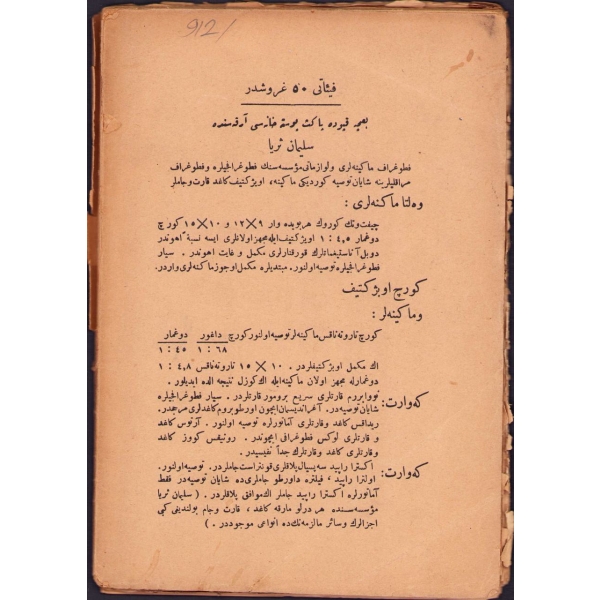 912/
فیئاتی ٥٠ غروشدر
بغچه قپوده یاکی پوسته خانه‌سی آرقه‌سنده
سلیمان ثریا
فطوغراف ماکینه‌لری ولوازماتی مؤسسه‌سنك فطوغرافجیلره وفطوغراف
مراقلیلرینه شایان توصیه کوردیکی ماکینه، اوبژکتیف کاغد قارت وجاملر
وه‌لتا ماکنه‌لری :
چیفت وتك کوروك هر بویده وار ٩×١٢ و ١٠×١٥ کورچ
دوغمار ٤,٥ : ١ اوبژکتیف ایله مجهز اولانلری ایسه نسبةً اهوندر
دوبل آناستیغماتلرك قورقتارلری مکمل و غایت اهوندر . سیار
فطوغرافجیلره توصیه اولنور. مبتدیلره مکمل اوجوز ماکنه‌لری واردر.
کورچ اوبژکتیف
وماکینه‌لر :
کورچ تاروته ناقس ماکینه‌لر توصیه اولنور کورچ داغور دوغمار
٦٨ : ١ ٤٥ : ١
اك مکمل اوبژکتیفلردر . ١٠×١٥ تاروته ناقس ٤,٨ : ١
دوغمارله مجهز اولان ماکینه ایله اك کوزل نتیجه الده ایدیلور .
که‌وارت: نووابرم قارتلری سریع برومور قارتلردر . سیار فطوغرافجیلره
شایان توصیه‌در. آغراندیسمان ایچون اورطوبروم کاغدلری مرجحدر.
ریداقس کاغد وقارتلری آماتورلره توصیه اولنور . آرتوس کاغد
و قارتلری لوکس فطوغرافی ایچوندر . رونیقس کووز کاغد
وقارتلری کاغد وقارتلرك جداً نفیسیدر.
که‌وارت: اکسترا راپید سپه‌سیال پلاقلری قونتراست جاملردر. توصیه اولنور.
اولترا راپید ، فیلتره داورطو جاملری‌ده شایان توصیه‌در فقط
آماتورلره اکسترا راپید جاملر اك موافق پلاقلردر . ( سلیمان ثریا
مؤسسه‌سنده هر درلو مارقه کاغد ، قارت وجام بولندیغی کبی
اجزالرك وسائر مالزمه‌نك‌ده انواعی موجوددر . )